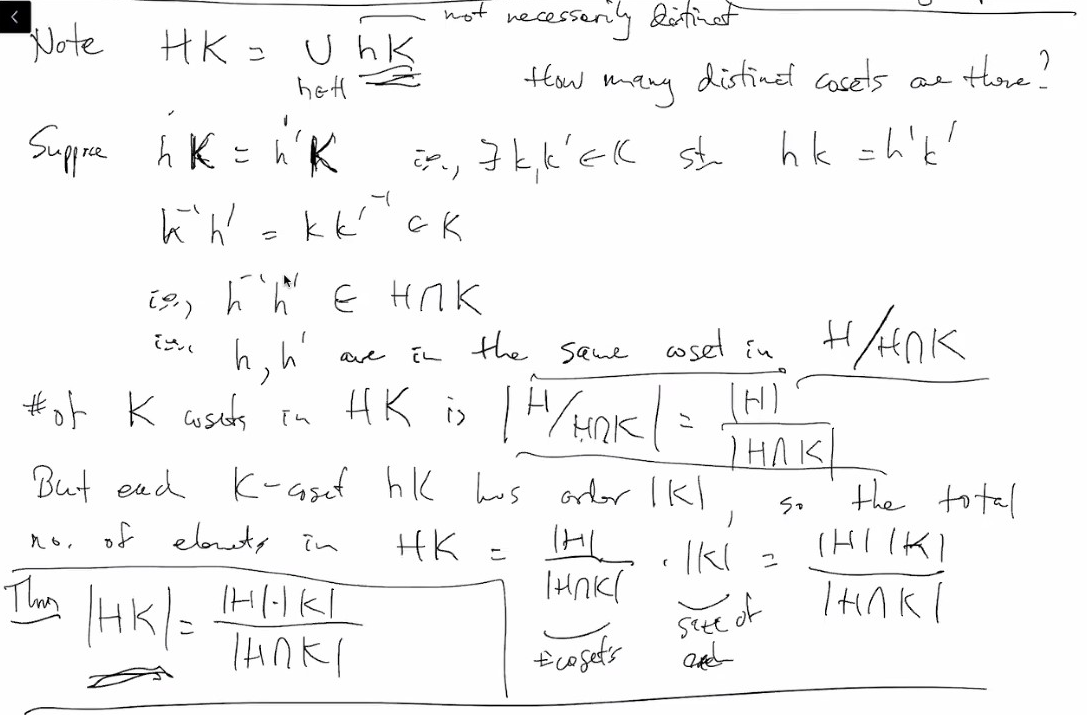 not necessarily distinct
Note HK = ∪ hK
h∈H
How many distinct cosets are there?
Suppose hK = h'K i.e., ∃ k,k' ∈ K st hk = h'k'
h⁻¹h' = kk'⁻¹ ∈ K
i.e., h⁻¹h' ∈ H∩K
i.e. h, h' are in the same coset in H/H∩K
# of K cosets in HK is |H/H∩K| = |H|/|H∩K|
But each K-coset hK has order |K|, so the total
no. of elements in HK = |H|/|H∩K| · |K| = |H| |K|/|H∩K|
Thus |HK| = |H|·|K|/|H∩K|
# cosets
size of
each